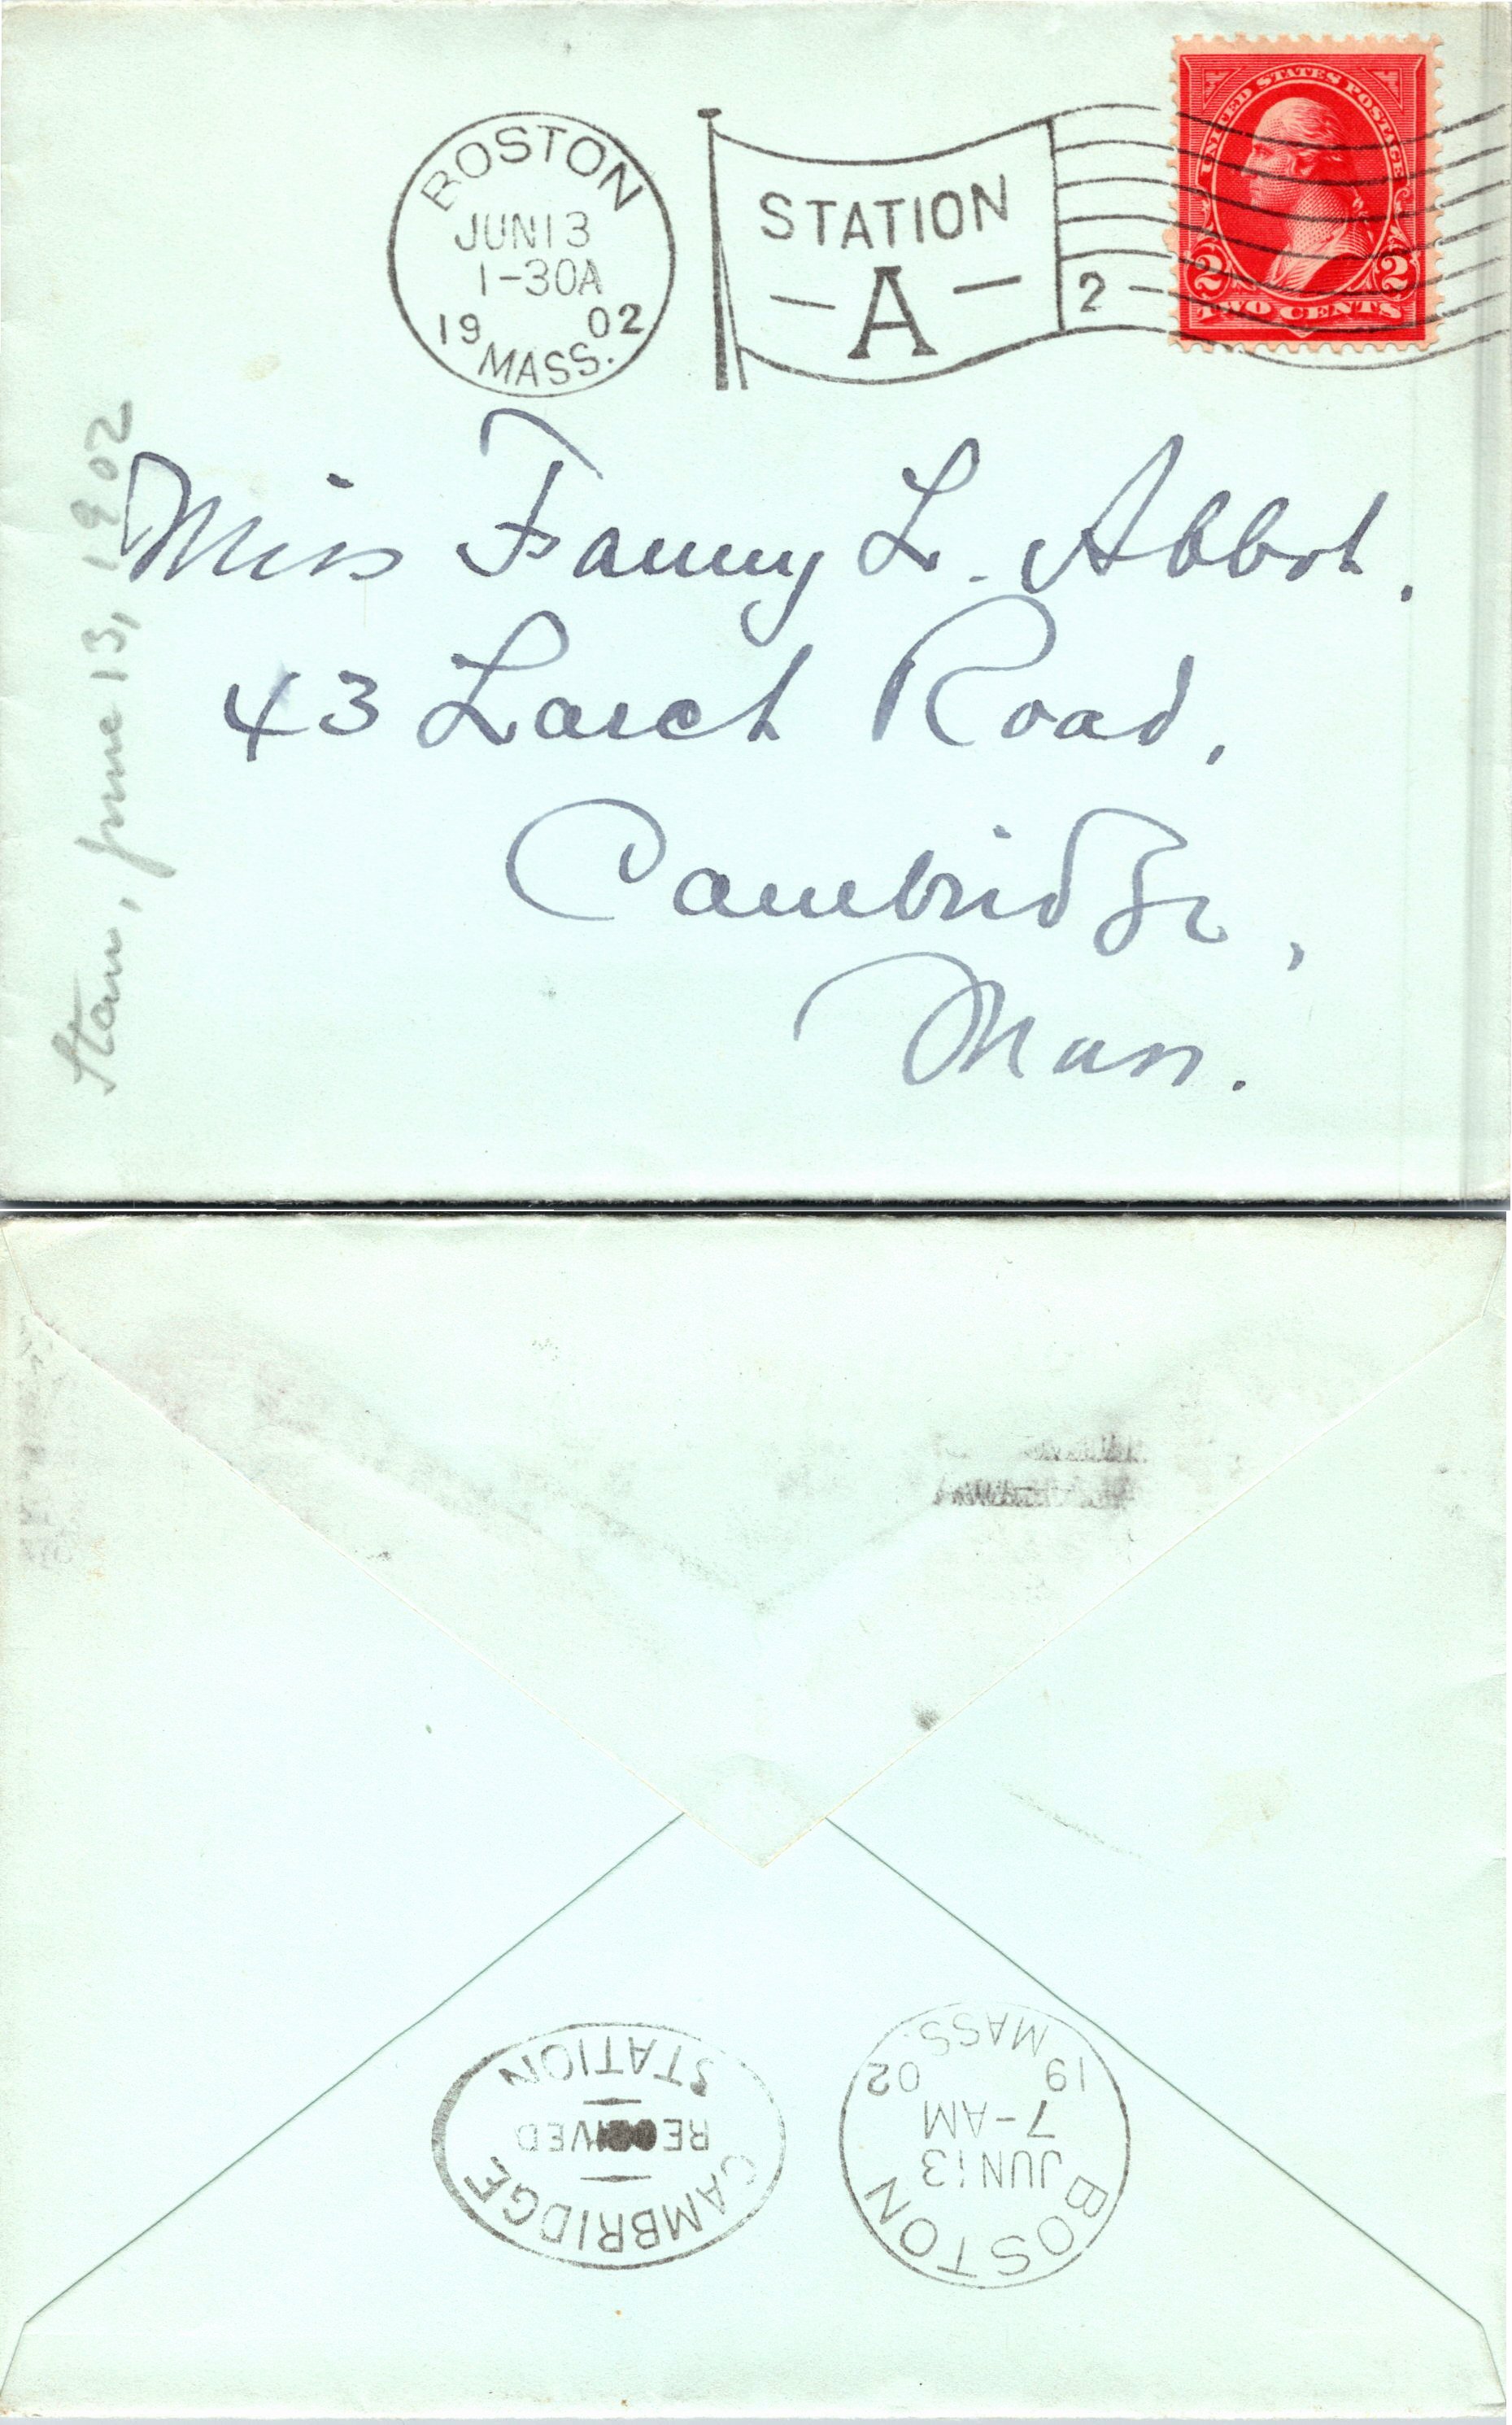 BOSTON
JUN 13
1-30A
19 02
MASS.
STATION
- A -
2
UNITED STATES POSTAGE
2 2
TWO CENTS
Miss Fanny L. Abbot.
43 Larch Road,
Cambridge,
Mass.
Stan, June 13, 1902
CAMBRIDGE
RECEIVED
STATION
BOSTON
JUN 13
7-AM
19 02
MASS.